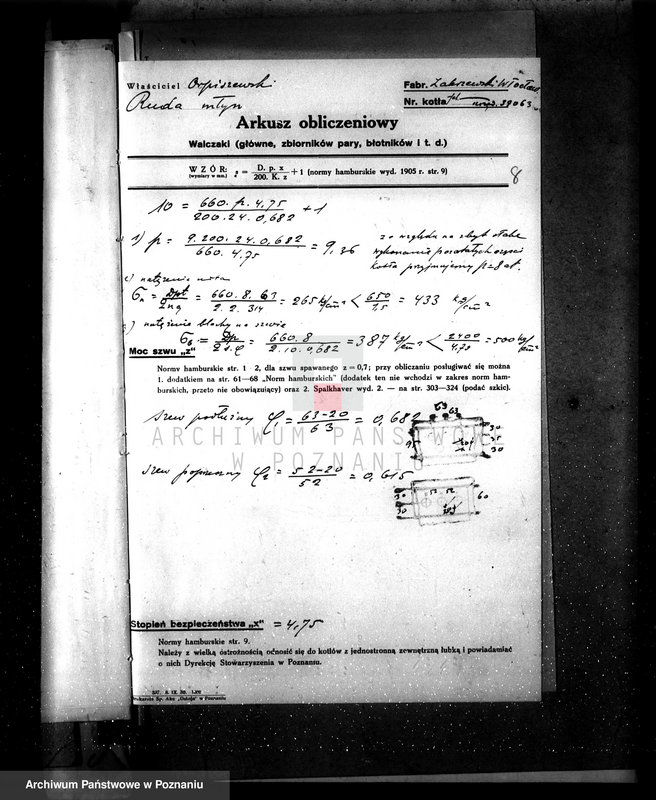 Właściciel Orpiszewski
Ruda młyn
Fabr. Zakrzewski Włocław.
Nr. kotła 39063
Arkusz obliczeniowy
Walczaki (główne, zbiorników pary, błotników i t. d.)
WZÓR: s = D. p. x / 200. K. z + 1 (normy hamburskie wyd. 1905 r. str. 9)
(wymiary w mm.)
8
10 = 660. p. 4,75 / 200. 24. 0,682 + 1
1) p = 9. 200. 24. 0,682 / 660. 4,75 = 9,36
ze względu na zbyt słabe
wykonanie pozostałych części
kotła przyjmujemy p=8 at.
natężenie nita
= 660. 8. 63 / 2. 2. 314 = 265 kg/cm² < 650 / 1,5 = 433 kg/cm²
) natężenie blachy na szwie
= 660. 8 / 2. 10. 0,682 = 387 kg/cm² < 2400 / 4,75 = 500 kg/cm²
Moc szwu „z"
Normy hamburskie str. 1 2, dla szwu spawanego z = 0,7; przy obliczaniu posługiwać się można
1. dodatkiem na str. 61—68 „Norm hamburskich" (dodatek ten nie wchodzi w zakres norm ham-
burskich, przeto nie obowiązujący) oraz 2. Spalkhaver wyd. 2. — na str. 303—324 (podać szkic).
szew podłużny φ₁ = 63-20 / 63 = 0,682
szew poprzeczny φ₂ = 52-20 / 52 = 0,615
63
30
35
30
30
30
53 52
60
ARCHIWUM PAŃSTWOWE
W POZNANIU
Stopień bezpieczeństwa „x" = 4,75
Normy hamburskie str. 9.
Należy z wielką ostrożnością odnosić się do kotłów z jednostronną zewnętrzną łubką i powiadamiać
o nich Dyrekcję Stowarzyszenia w Poznaniu.
Archiwum Państwowe w Poznaniu